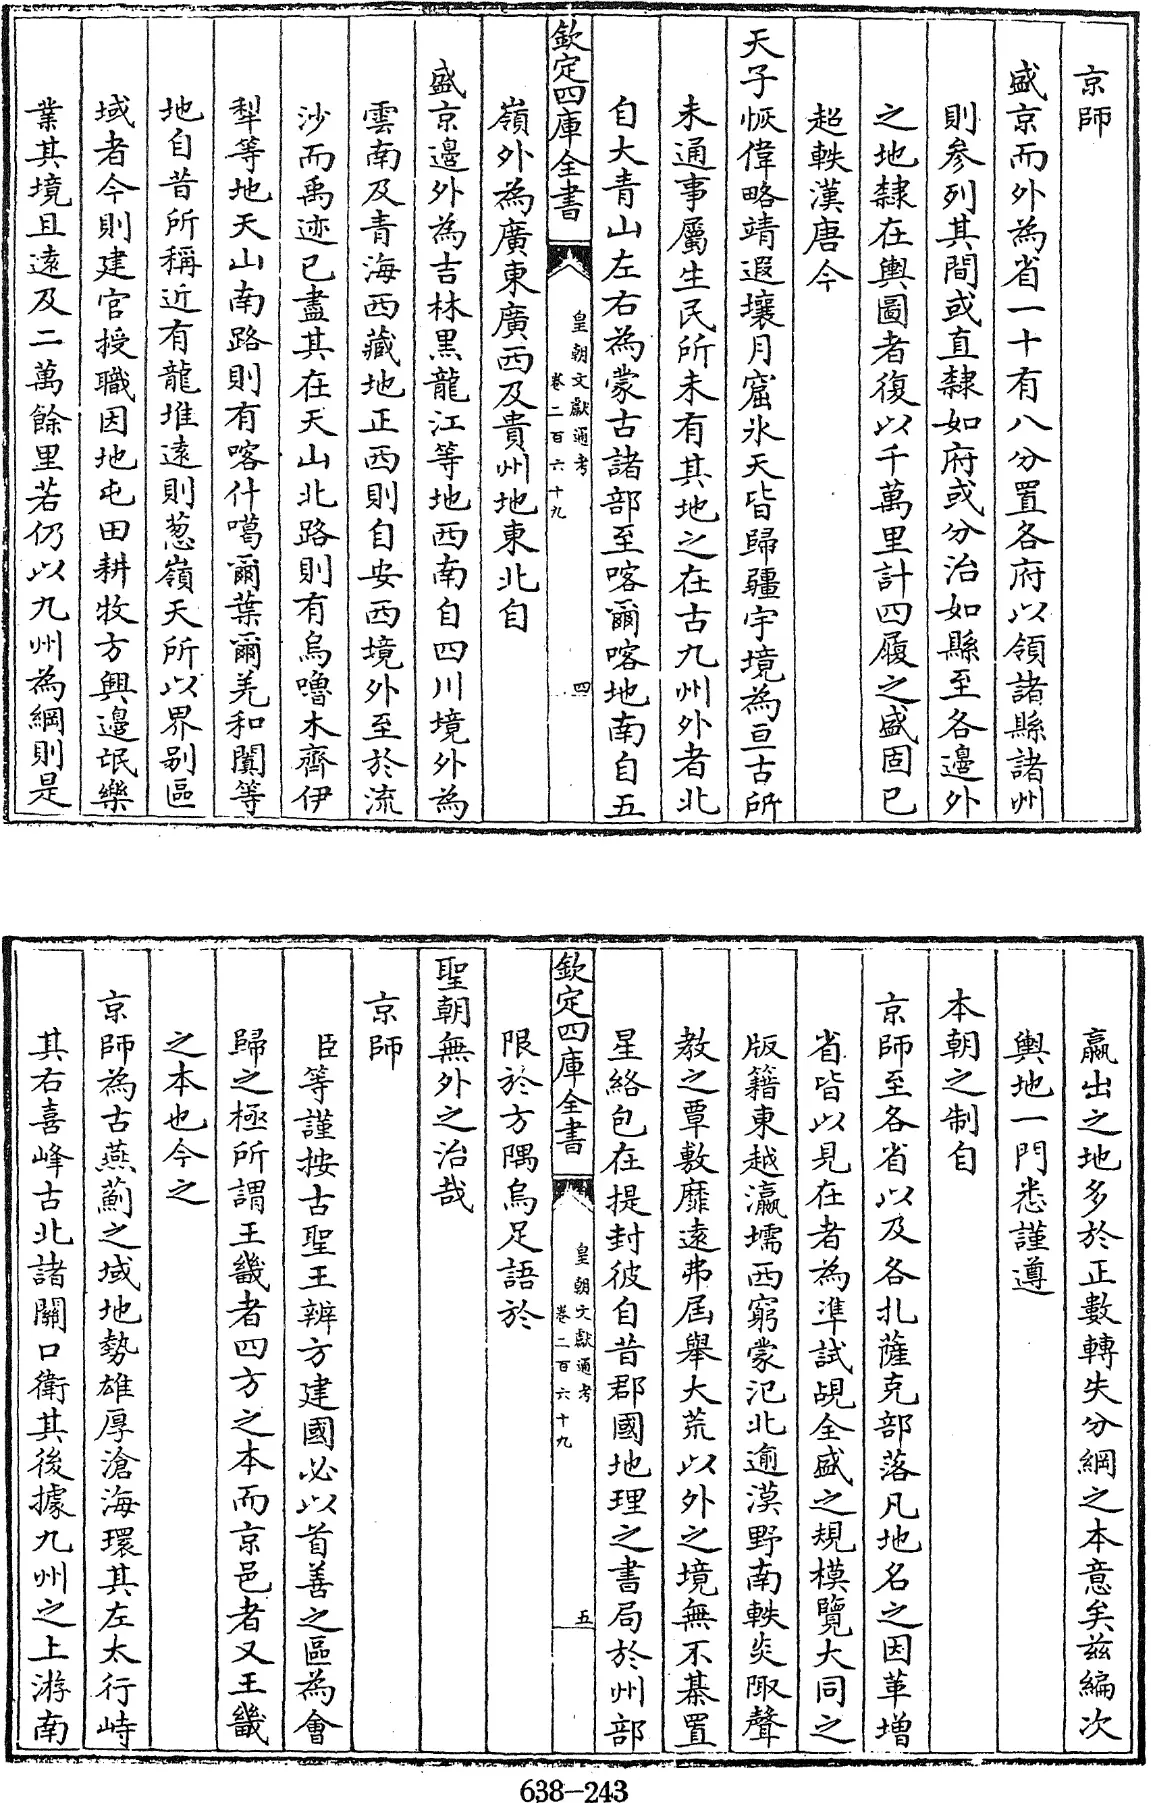 京師
盛京而外為省一十有八分置各府以領諸縣諸州
則參列其間或直隸如府或分治如縣至各邊外
之地隸在輿圖者復以千萬里計四履之盛固已
超軼漢唐今
天子恢偉略靖遐壤月窟氷天皆歸疆宇境為亘古所
未通事屬生民所未有其地之在古九州外者北
自大青山左右為蒙古諸部至喀爾喀地南自五
欽定四庫全書
皇朝文獻通考
卷二百六十九
四
嶺外為廣東廣西及貴州地東北自
盛京邊外為吉林黑龍江等地西南自四川境外為
雲南及青海西藏地正西則自安西境外至於流
沙而禹迹已盡其在天山北路則有烏嚕木齊伊
犁等地天山南路則有喀什噶爾葉爾羌和闐等
地自昔所稱近有龍堆遠則葱嶺天所以界别區
域者今則建官授職因地屯田耕牧方興邊氓樂
業其境且遠及二萬餘里若仍以九州為綱則是
贏出之地多於正數轉失分綱之本意矣兹編次
輿地一門悉謹遵
本朝之制自
京師至各省以及各扎薩克部落凡地名之因革增
省皆以見在者為準試覘全盛之規模覽大同之
版籍東越瀛壖西窮蒙汜北逾漠野南軼炎陬聲
教之覃敷靡遠弗屆舉大荒以外之境無不棊置
星絡包在提封彼自昔郡國地理之書局於州部
欽定四庫全書
皇朝文獻通考
卷二百六十九
五
限於方隅烏足語於
聖朝無外之治哉
京師
臣等謹按古聖王辨方建國必以首善之區為會
歸之極所謂王畿者四方之本而京邑者又王畿
之本也今之
京師為古燕薊之域地勢雄厚滄海環其左太行峙
其右喜峰古北諸關口衛其後據九州之上游南
638-243